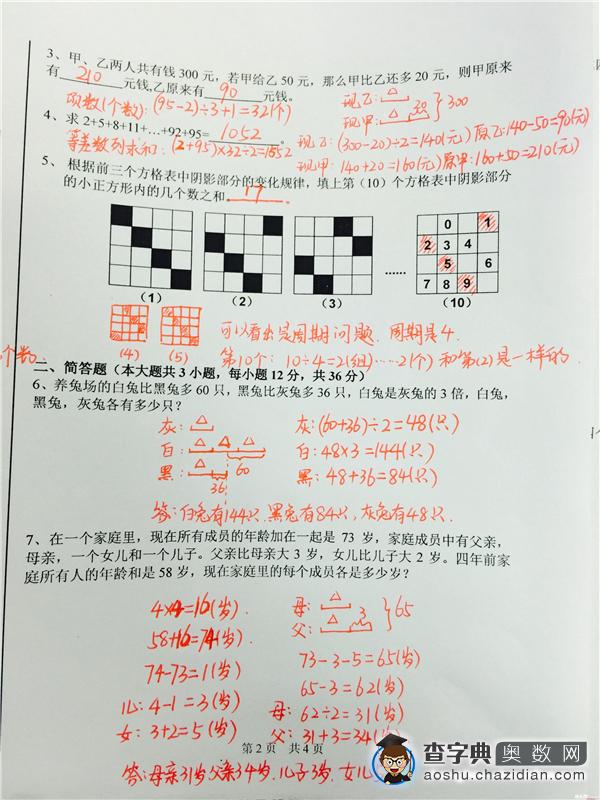 3、甲、乙两人共有钱 300 元，若甲给乙 50 元，那么甲比乙还多 20 元，则甲原来
有 210 元钱,乙原来有 90 元钱。
项数(个数)：(95-2)÷3+1=32(个)
现乙：△
现甲：△ 20 }300
4、求 2+5+8+11+…+92+95= 1052 。
等差数列求和：(2+95)×32÷2=1552
现乙：(300-20)÷2=140(元) 原乙：140-50=90(元)
现甲：140+20=160(元) 原甲：160+50=210(元)
5、 根据前三个方格表中阴影部分的变化规律，填上第（10）个方格表中阴影部分
的小正方形内的几个数之和 17 。
0 1
2 3 4
5 6
7 8 9
……
（1） （2） （3） （10）
(4) (5)
可以看出是周期问题．周期是4．
第10个：10÷4=2(组)……2(个) 和第(2)是一样的．
个数．
二、简答题（本大题共 3 小题，每小题 12 分，共 36 分）
6、养兔场的白兔比黑兔多 60 只，黑兔比灰兔多 36 只，白兔是灰兔的 3 倍，白兔，
黑兔，灰兔各有多少只？
灰：△ 灰：(60+36)÷2=48(只)
白：△ △ △ 白：48×3=144(只)
60
黑：△ 黑：48+36=84(只)
36
答：白兔有144只．黑兔有84只，灰兔有48只．
7、在一个家庭里，现在所有成员的年龄加在一起是 73 岁，家庭成员中有父亲，
母亲，一个女儿和一个儿子。父亲比母亲大 3 岁，女儿比儿子大 2 岁。四年前家
庭所有人的年龄和是 58 岁，现在家庭里的每个成员各是多少岁？
4×4=16(岁) 母：△
58+16=74(岁) 父：△ 3 }65
74-73=1(岁) 73-3-5=65(岁)
65-3=62(岁)
儿：4-1=3(岁) 母：62÷2=31(岁)
女：3+2=5(岁) 父：31+3=34(岁)
第 2 页 共 4 页
答：母亲31岁父亲34岁．儿子3岁．女儿
查字典奥数网
aoshu.chazidian.com